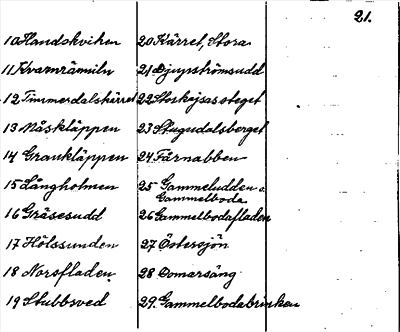 21.
10 Handskviken
11 Kvarnrämiln
12 Timmerdalskärret
13 Måskläppen
14 Grankläppen
15 Långholmen
16 Gräsesudd
17 Hölssunden
18 Norsfladen
19 Stubbsved
20 Kärret, Stora
21 Djupströmsudd
22 Storkajsas steget
23 Stugudalsberget
24 Fårnabben
25 Gammeludden o.
Gammelboda
26 Gammelbodafladen
27 Östersjön
28 Domarsäng
29. Gammelbodabrinken